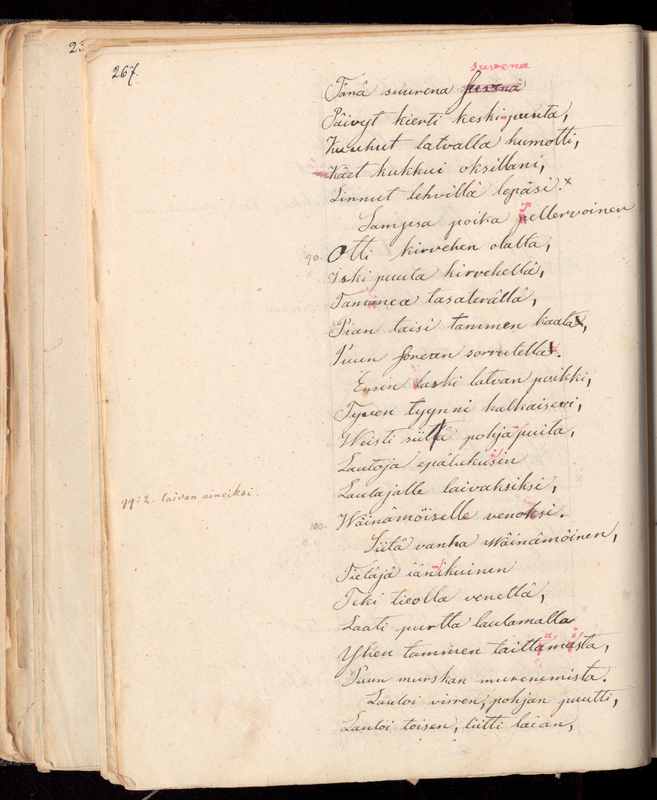 23
267.
suvena
Tänä suurena suvena
Päivyt kierti keski-puuta,
Kuuhut latvalla kumotti,
Käet kukkui oksillani,
Linnut lehvillä lepäsi. x
Sampsa poika pellervoinen
90. Otti kirvehen olalta,
Iski puuta kirvehellä,
Tammea tasaterällä,
Pian taisi tammen kaata,
Puun sorean sorrutella.
Ensin laski latvan poikki,
Tyven tyynni halkaisevi,
Weisti siitä pohjapuita,
Lautoja epälukuisin
99:2. laivan aineiksi.
Laulajalle laivaksiksi,
100. Wäinämöiselle venoksi.
Siitä vanha Wäinämöinen,
Tietäjä iänikuinen
Teki tieolla venettä,
Laati purtta laulamalla
Yhen tammen taittamista,
Puun murskan murenemista.
Lauloi virren, pohjan puutti,
Lauloi toisen, liitti laian,